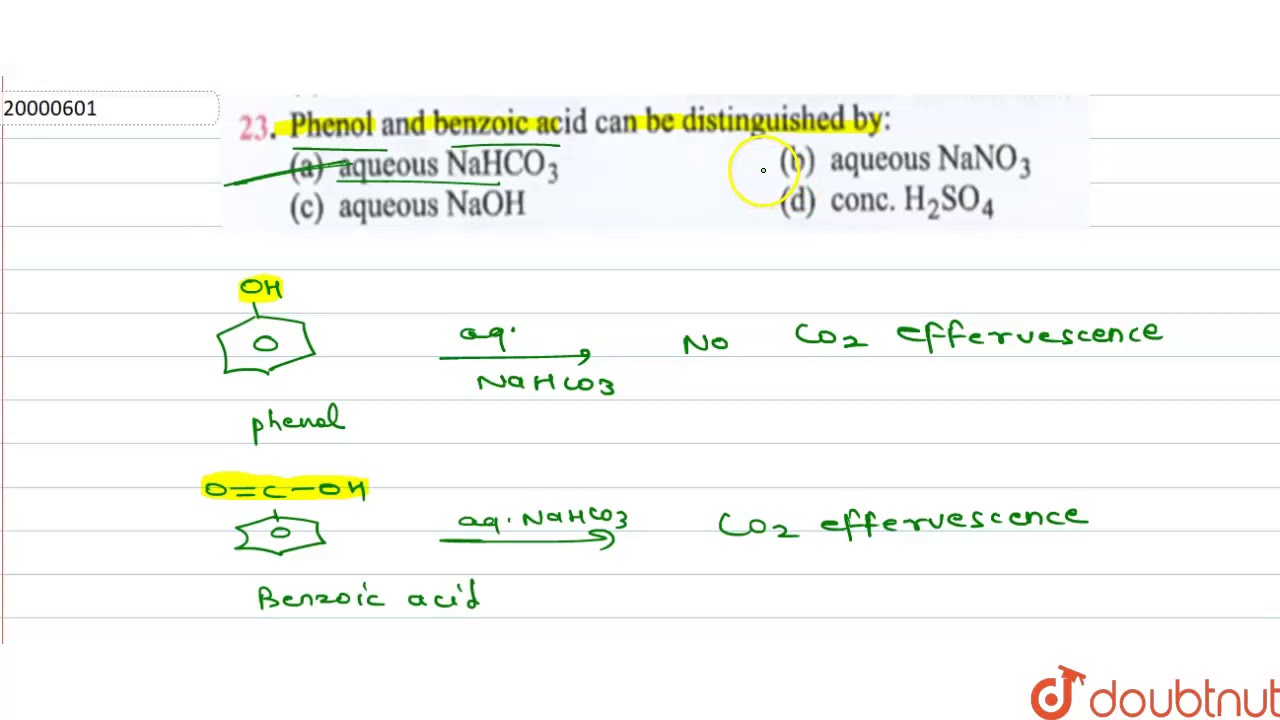 20000601
23. Phenol and benzoic acid can be distinguished by:
(a) aqueous NaHCO₃ (b) aqueous NaNO₃
(c) aqueous NaOH (d) conc. H₂SO₄
OH
aq.
NaHCO₃
No CO₂ effervescence
phenol
O=C-OH
aq. NaHCO₃
CO₂ effervescence
Benzoic acid
doubtnut